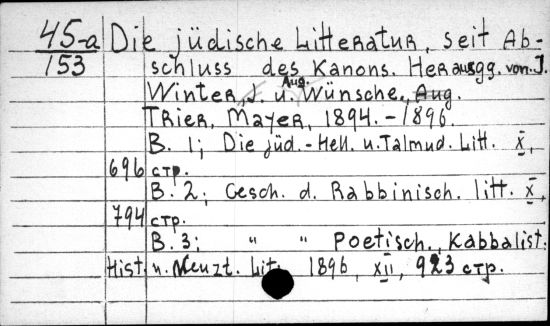 45-a Die jüdische Litteratur, seit Ab-
153 schluss des Kanons. Herausgg. von J.
Winter, J. u. Aug. Wünsche, Aug.
Trier, Mayer, 1894.-1896.
B. 1; Die jüd.-Hell. u. Talmud. Litt. X,
696 стр.
B. 2; Gesch. d. Rabbinisch. litt. X,
794 стр.
B. 3; " " Poetisch., Kabbalist.
Hist. u. Neuzt. Lit. 1896, XII, 923 стр.